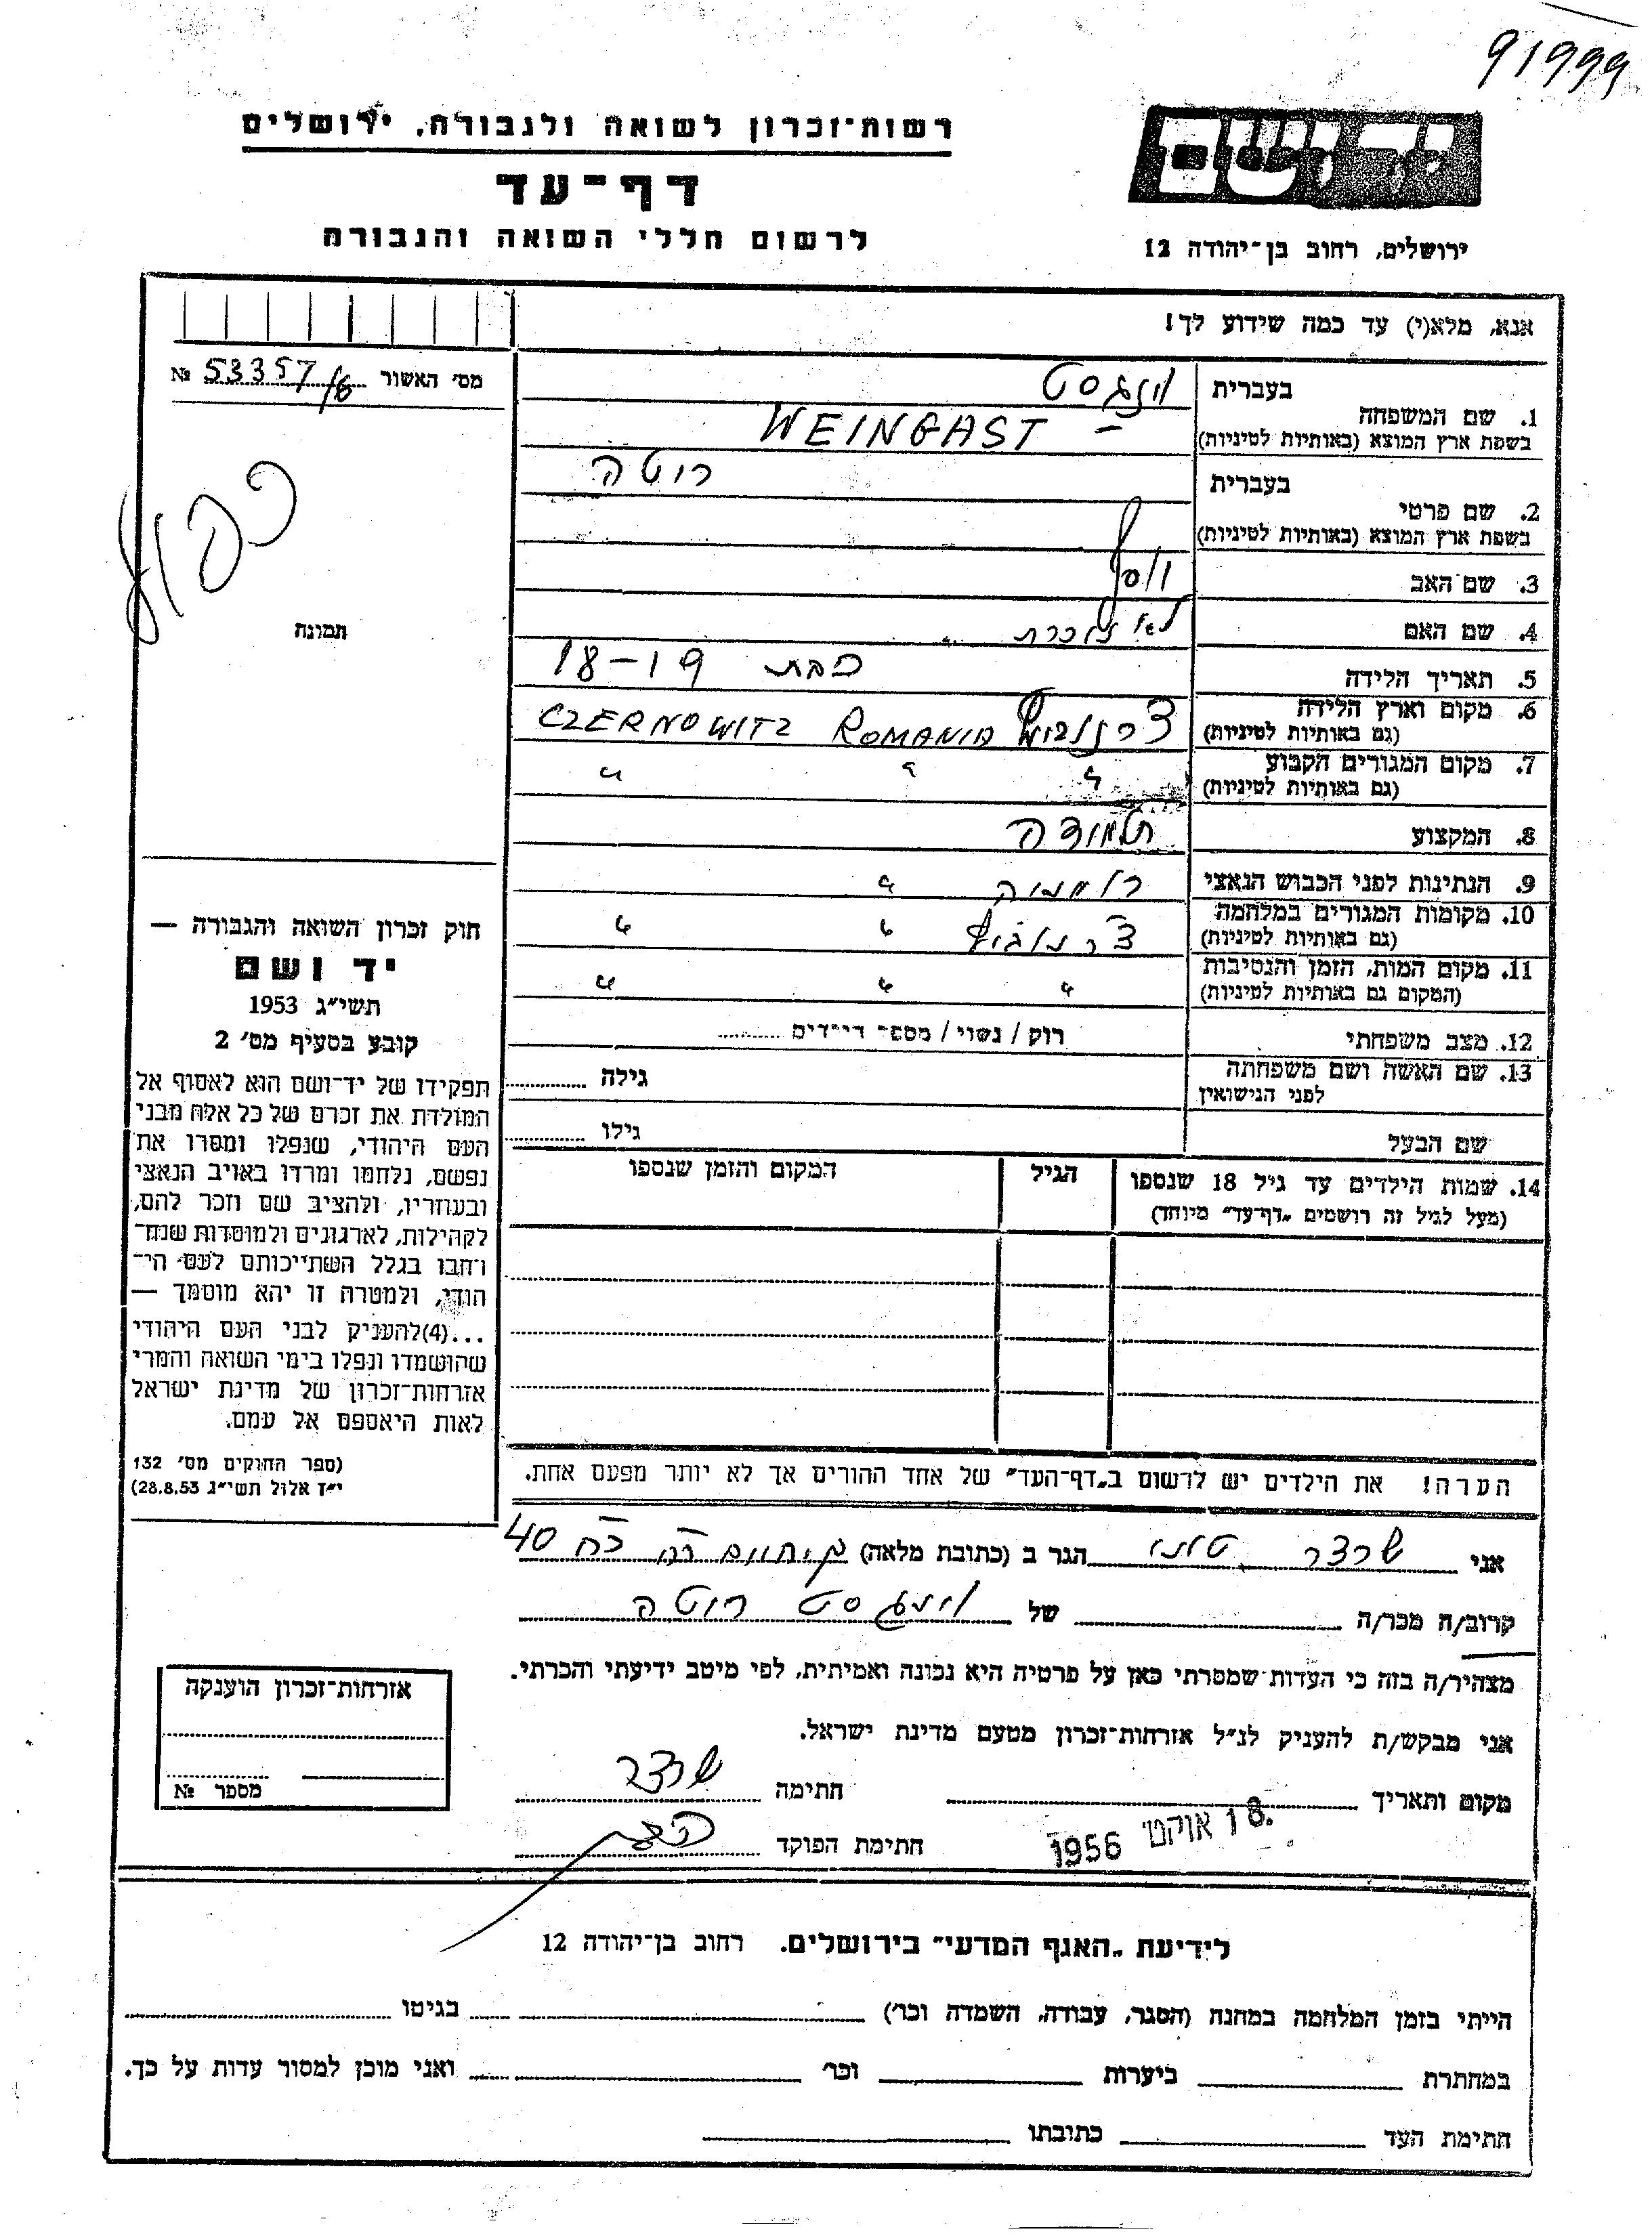 91999
יד ושם
ירושלים, רחוב בן־יהודה 12
רשות־זכרון לשואה ולגבורה, ירושלים
דף־עד
לרשום חללי השואה והגבורה
אנא, מלא(י) עד כמה שידוע לך!
מס׳ האשור 53357/6 №
כפול
תמונה
1. שם המשפחה
בעברית וינגסט
בשפת ארץ המוצא (באותיות לטיניות) WEINGAST
2. שם פרטי
בעברית רוטה
בשפת ארץ המוצא (באותיות לטיניות)
3. שם האב
4. שם האם לא זוכרת
5. תאריך הלידה כבת 18-19
6. מקום וארץ הלידה צרנוביץ CZERNOWITZ ROMANIA
(גם באותיות לטיניות)
7. מקום המגורים הקבוע " " "
(גם באותיות לטיניות)
8. המקצוע תלמידה
9. הנתינות לפני הכבוש הנאצי רומניה "
10. מקומות המגורים במלחמה צרנוביץ " "
(גם באותיות לטיניות)
11. מקום המות, הזמן והנסיבות " " "
(המקום גם באותיות לטיניות)
12. מצב משפחתי רוק / נשוי / מספר הילדים
13. שם האשה ושם משפחתה גילה
לפני הנישואין
שם הבעל גילו
14. שמות הילדים עד גיל 18 שנספו הגיל המקום והזמן שנספו
(מעל לגיל זה רושמים "דף־עד" מיוחד)
הערה! את הילדים יש לרשום ב"דף־העד" של אחד ההורים אך לא יותר מפעם אחת.
חוק זכרון השואה והגבורה —
יד ושם
תשי״ג 1953
קובע בסעיף מס׳ 2
תפקידו של יד־ושם הוא לאסוף אל
המולדת את זכרם של כל אלה מבני
העם היהודי, שנפלו ומסרו את
נפשם, נלחמו ומרדו באויב הנאצי
ובעוזריו, ולהציב שם וזכר להם,
לקהילות, לארגונים ולמוסדות שנח־
רבו בגלל השתייכותם לעם הי־
הודי, ולמטרה זו יהא מוסמך —
...(4)להעניק לבני העם היהודי
שהושמדו ונפלו בימי השואה והמרי
אזרחות־זכרון של מדינת ישראל
לאות היאספם אל עמם.
(ספר החוקים מס׳ 132
י״ז אלול תשי״ג 28.8.53)
אני שרצר הגר ב (כתובת מלאה) 40
קרוב/ה מכר/ה של וינגסט רוטה
מצהיר/ה בזה כי העדות שמסרתי כאן על פרטיה היא נכונה ואמיתית, לפי מיטב ידיעתי והכרתי.
אני מבקש/ת להעניק לנ״ל אזרחות־זכרון מטעם מדינת ישראל.
מקום ותאריך חתימה שרצר
18 אוקט׳ 1956
חתימת הפוקד
אזרחות־זכרון הוענקה
מספר №
לידיעת "האגף המדעי" בירושלים, רחוב בן־יהודה 12
הייתי בזמן המלחמה במחנה (הסגר, עבודה, השמדה וכו׳) בגיטו
במחתרת ביערות וכו׳ ואני מוכן למסור עדות על כך.
חתימת העד כתובתו